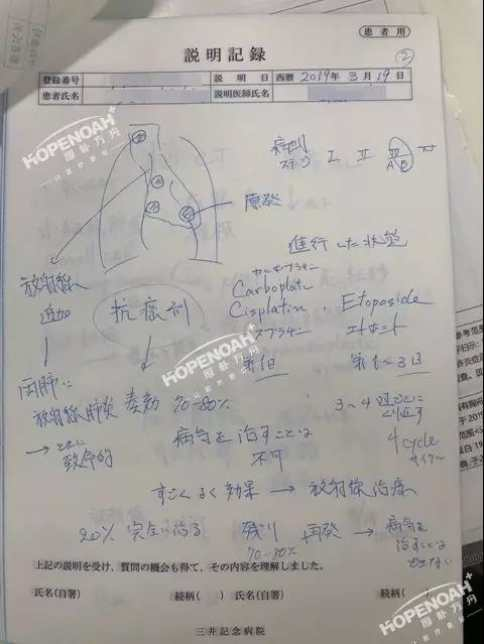 患者用
説明記録
②
登録番号 説明日 西暦 2019年 3月 19日
患者氏名 説明医師氏名
HOPENOAH+
病期
I II III
A B
原発
進行した状態
放射線
追加
抗癌剤
Carboplatin
Cisplatin
Etoposide
第1日
第1~3日
放射線肺炎
致命的
奏効 70-80%
3~4週ごとに
4 cycle
サイクル
病気を治すことは
不可
すごくよく効果 → 放射線治療
20% 完全に治る 残り 再発 → 病気を
70-80% 治すことは
できない
上記の説明を受け、質問の機会も得て、その内容を理解しました。
氏名(自署) 続柄( ) 氏名(自署) 続柄(
三井記念病院